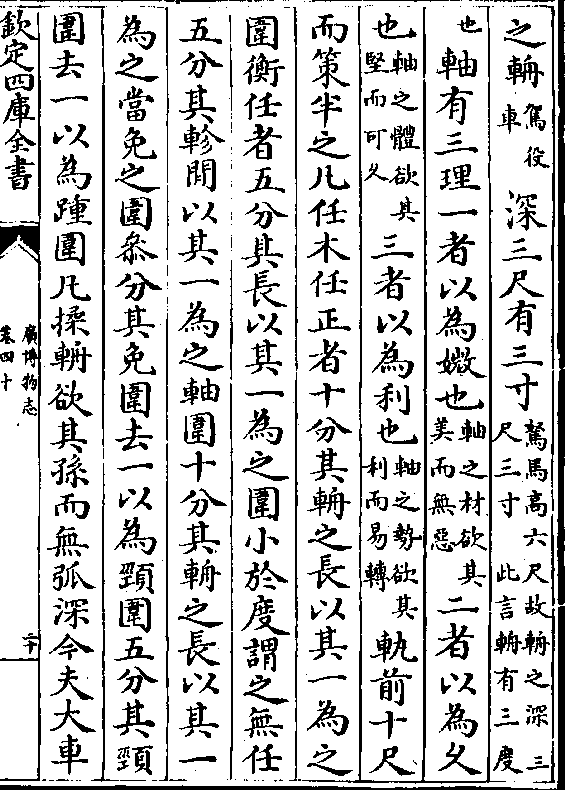 之輈駕役車深三尺有三寸駑馬高六尺故輈之深三尺三寸此言輈有三度
也軸有三理一者以為媺也軸之材欲其美而無惡二者以為久
也軸之體欲其堅而可久三者以為利也軸之勢欲其利而易轉軌前十尺
而策半之凡任木任正者十分其輈之長以其一為之
圍衡任者五分其長以其一為之圍小於度謂之無任
五分其軫閒以其一為之軸圍十分其輈之長以其一
為之當免之圍叅分其免圍去一以為頸圍五分其頸
圍去一以為踵圍凡揉輈欲其孫而無弧深今夫大車
欽定四庫全書
廣博物志
卷四十